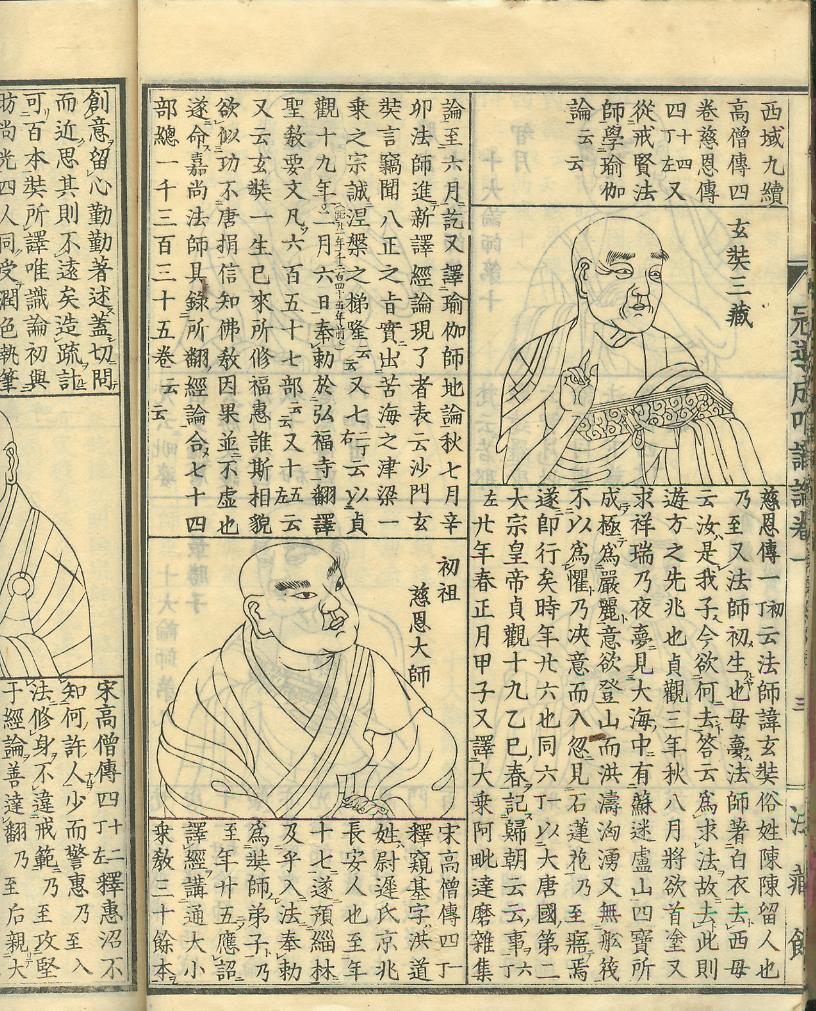 西域九續
高僧傳四
卷慈恩傳
四十四丁左又
從戒賢法
師學瑜伽
論云云
玄奘三藏
慈恩傳一初丁云法師諱玄奘俗姓陳陳留人也
乃至又法師初生也母夢法師著白衣去西母
云汝是我子今欲何去荅云爲求法故去此則
遊方之先兆也貞觀三年秋八月將欲首塗又
求祥瑞乃夜夢見大海中有蘇迷盧山四寶所
成極爲嚴麗意欲登山而洪濤洶湧又無舩筏
不以爲懼乃決意而入忽見石蓮花乃至寤焉
遂即行矣時年廿六也同六丁以大唐國第二
大宗皇帝貞觀十九乙巳春記歸朝云云事六丁
左廿年春正月甲子又譯大乘阿毗達磨雜集
論至六月訖又譯瑜伽師地論秋七月辛
卯法師進新譯經論現了者表云沙門玄
奘言竊聞八正之旨實出苦海之津梁一
乗之宗誠涅槃之梯隥云云又七右二丁云以貞
觀十九年二月六日奉勅於弘福寺翻譯
聖教要文凡六百五十七部云云又十左五云
又云玄奘一生已來所修福惠誰斯相貌
欲似功不唐捐信知佛教因果並不虛也
遂命嘉尚法師具錄所翻經論合七十四
部總一千三百三十五卷云云
初祖
慈恩大師
宋高僧傳四丁
釋窺基字洪道
姓尉遲氏京兆
長安人也至年
十七遂預緇林
及乎入法奉勅
爲奘師弟子乃
至年廿五應詔
譯經講通大小
乗教三十餘本
創意留心勤勤著述蓋切問
而近思其則不遠矣造疏計
可百本奘所譯唯識論初與
昉尚光四人同受潤色執筆
宋高僧傳四十二丁左釋惠沼不
知何許人少而警惠乃至入
法修身不違戒範乃至攻堅
于經論善達翻乃至后親大
三
法藏館